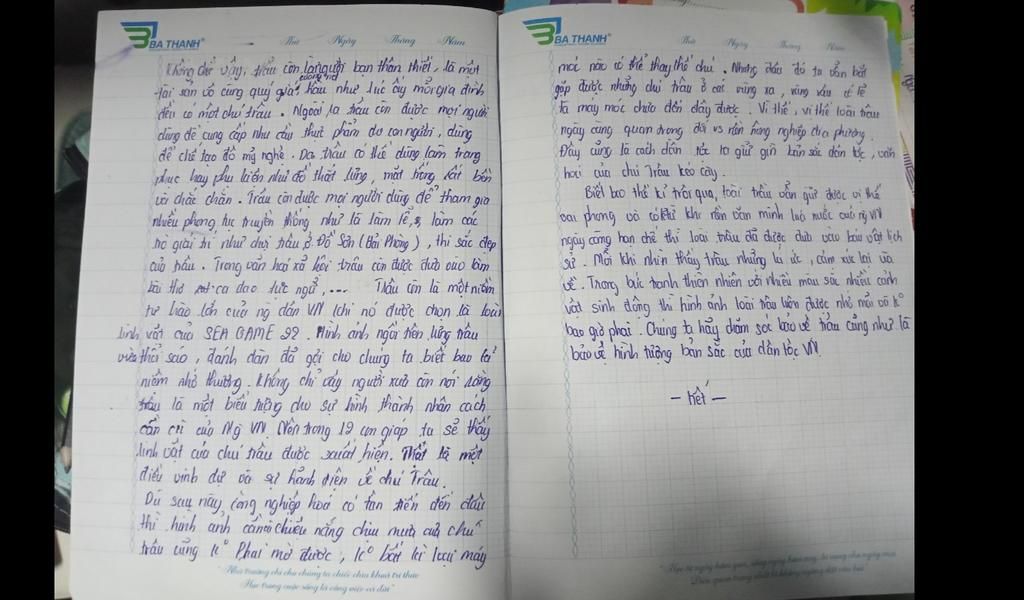 BA THANH®
Thứ Ngày Tháng Năm
Không chỉ vậy, trâu còn là người bạn thân thiết, là một
tài sản vô cùng quý giá, hầu như lúc ấy mỗi gia đình
đều có một chú trâu. Ngoài ra trâu còn được mọi người
dùng để cung cấp nhu cầu thực phẩm cho con người, dùng
để chế tạo đồ mỹ nghệ. Da trâu có thể dùng làm trang
phục hay phụ kiện như đồ thắt lưng, mặt trống rất bền
và chắc chắn. Trâu còn được mọi người dùng để tham gia
nhiều phong tục truyền thống như là làm lễ, làm các
trò giải trí như chọi trâu ở Đồ Sơn (Hải Phòng), thi sắc đẹp
của trâu. Trong văn hoá xã hội trâu còn được đưa vào làm
bài thơ ca dao tục ngữ, ... Trâu còn là một niềm
tự hào lớn của ng dân VN khi nó được chọn là loài
linh vật của SEA GAME 22. Hình ảnh ngồi trên lưng trâu
vừa thổi sáo, đánh đàn đã gợi cho chúng ta biết bao là
niềm nhớ thương. Không chỉ vậy người xưa còn nói rằng
trâu là một biểu tượng cho sự hình thành nhân cách
cần cù của Ng VN. Nên trong 12 con giáp ta sẽ thấy
linh vật của chú trâu được xuất hiện. Thật là một
điều vinh dự và sự hãnh diện về chú Trâu.
Dù sau này công nghiệp hoá có tân tiến đến đâu
thì hình ảnh chiều nắng chịu mưa của chú
trâu cũng k° Phai mờ được, k° bất kì loại máy
"Nhà trường chỉ cho chúng ta chiếc chìa khoá tri thức
Học trong cuộc sống là công việc cả đời"
BA THANH®
Thứ Ngày Tháng Năm
móc nào có thể thay thế chú. Nhưng đâu đó ta vẫn bắt
gặp được những chú trâu ở các vùng xa, vùng sâu vì lẽ
là máy móc chưa đến đây được. Vì thế, vì thế loài trâu
ngày càng quan trọng đối vs nền nông nghiệp địa phương.
Đây cũng là cách dân tộc ta giữ gìn bản sắc dân tộc, văn
hoá của chú Trâu kéo cày.
Biết bao thế kỉ trôi qua, loài trâu vẫn giữ được vị thế
oai phong và có khi nền văn minh lúa nước của ng VN
ngày càng hạn chế thì loài trâu đã được đưa vào bảo vật lịch
sử. Mỗi khi nhìn thấy trâu những kí ức, cảm xúc lại ùa
về. Trong bức tranh thiên nhiên với nhiều màu sắc nhiều cảnh
vật sinh động thì hình ảnh loài trâu luôn được nhớ mãi và k°
bao giờ phai. Chúng ta hãy chăm sóc bảo vệ trâu cũng như là
bảo vệ hình tượng bản sắc của dân tộc VN.
- Hết -